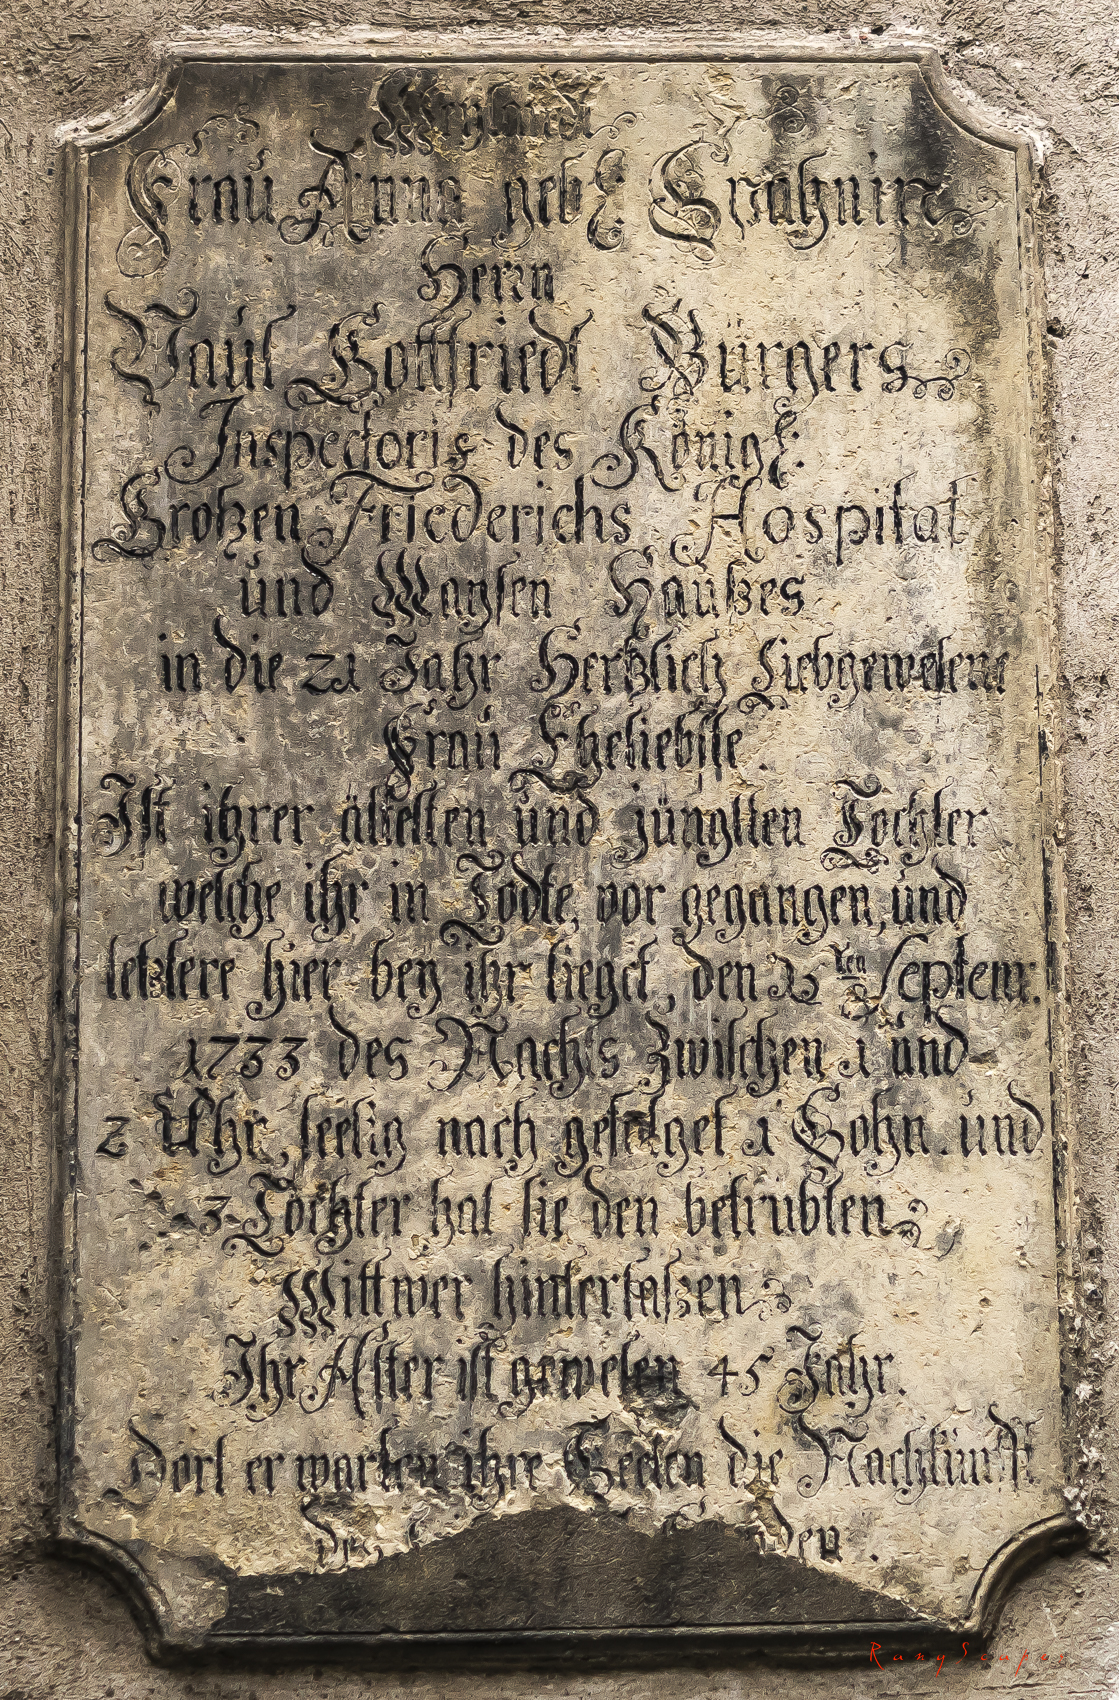 Frau Anna geb:
Herrn
Paul Gottfriedt Bürgers
Inspectoris des Königl:
Großen Friederichs Hospital
und Waysen Haußes
in die 21 Jahr Hertzlich Liebgewesene
Frau Eheliebste.
Ist ihrer ältesten und jüngsten Tochter
welche ihr in Todte, vor gegangen, und
letztere hier bey ihr lieget, den 15ten Septemr:
1733 des Nachts zwischen 1 und
2 Uhr, seelig nach gefolget 1 Sohn. und
3 Töchter hat sie den betrubten
Wittwer hinterlaßen
Ihr Alter ist gewesen 45 Jahr.
Dort er warten ihre Seelen die Nachkunfft
Des